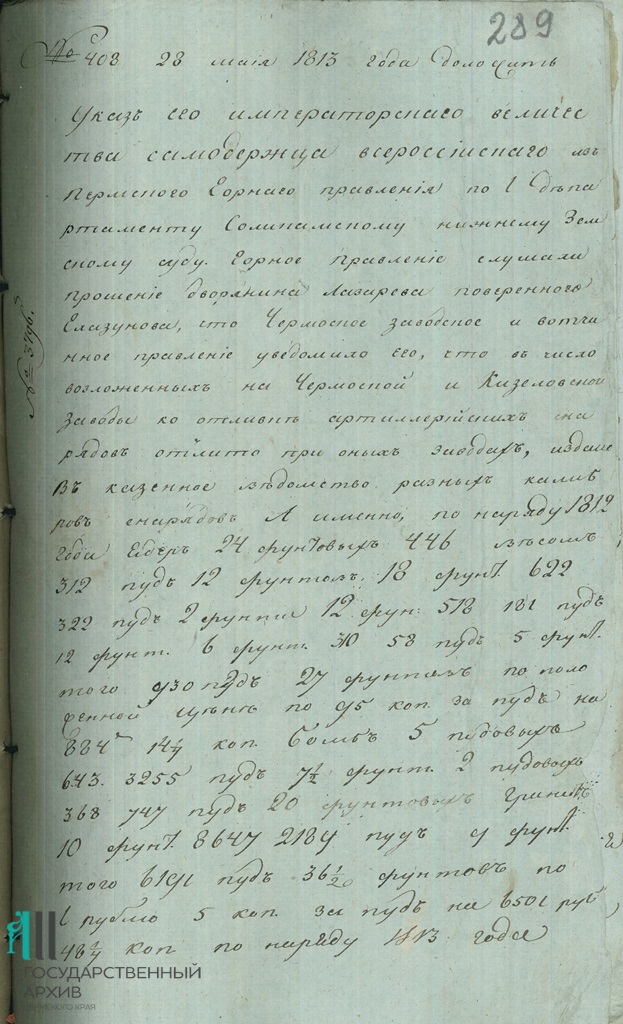 289
№ 408 28 маiя 1813 года доложить
Указъ его императорскаго величес
тва самодержца всероссiйскаго изъ
Пермскаго Горнаго правленiя по 1 Депа
ртаменту Соликамскому нижнему Зем
скому суду. Горное правленiе слушали
прошенiе дворянина Лазарева повереннаго
что Чермоское заводское и вотчи
нное правленiе уведомило его, что въ число
возложенныхъ на Чермоской и Кизеловской
Заводы ко отливкъ артиллерiйскихъ сна
рядовъ отлито при оныхъ заводахъ,
Въ казенное ведомство разныхъ калиб
ровъ снарядовъ А именно, по наряду 1812
года Ядеръ 24 фунтовыхъ 446 весомъ
312 пудъ 12 фунтовъ 18 фунт. 622
322 пудъ 2 фунта 12 фун. 518 181 пудъ
12 фунт. 6 фунт. 310 58 пудъ 5 фунт.
того 930 пудъ 27 фунтовъ по поло
женной цене по 95 коп за пудъ на
884 14 1/4 коп Бомбъ 5 пудовыхъ
643. 3255 пудъ 7 1/2 фунт. 2 пудовыхъ
368 747 пудъ 20 фунтовыхъ гранатъ
10 фунт. 8647 2189 пудъ 9 фунт. и
того 6191 пудъ 36 1/2 фунтовъ по
1 рублю 5 коп за пудъ на 6501 руб
48 коп по наряду 1813 года
ГОСУДАРСТВЕННЫЙ
АРХИВ
ПЕРМСКОГО КРАЯ